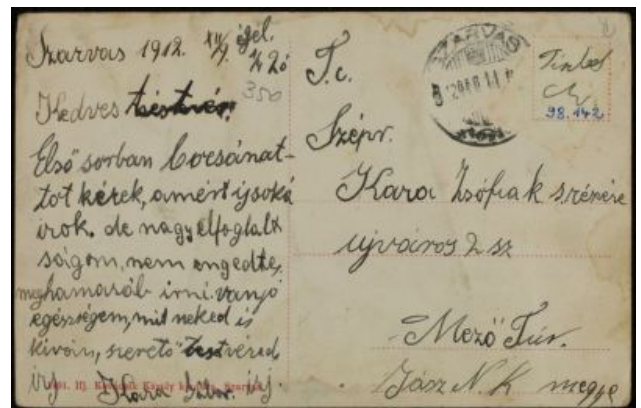 Szarvas 1912. XII/9. éjjel.
½ 20
350
Kedves testvér!
Első sorban bocsánat-
tot kérek, amért ijsoká
irok. de nagy elfoglalt
ságom, nem engedte,
meghamaráb irni. van jó
egészségem, mit neked is
kiván, szerető testvéred
irj Kara Gábor. irj.
T. c.
Szépr.
Kara Zsófiak részére
ujváros 2 sz
Mező Túr.
Jász N. K megye
SZARVAS
98.142